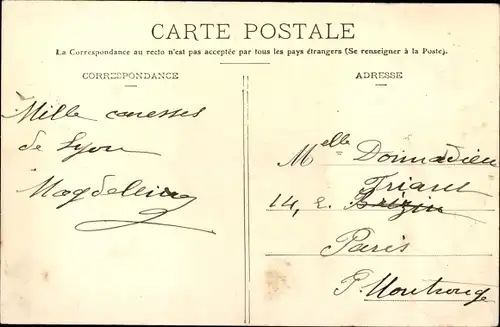 CARTE POSTALE
La Correspondance au recto n'est pas acceptée par tous les pays étrangers (Se renseigner à la Poste).
CORRESPONDANCE
Mille caresses
de Lyon
Magdeleine
ADRESSE
Melle Donnadieu
14, r.
Paris
P. Montrouge